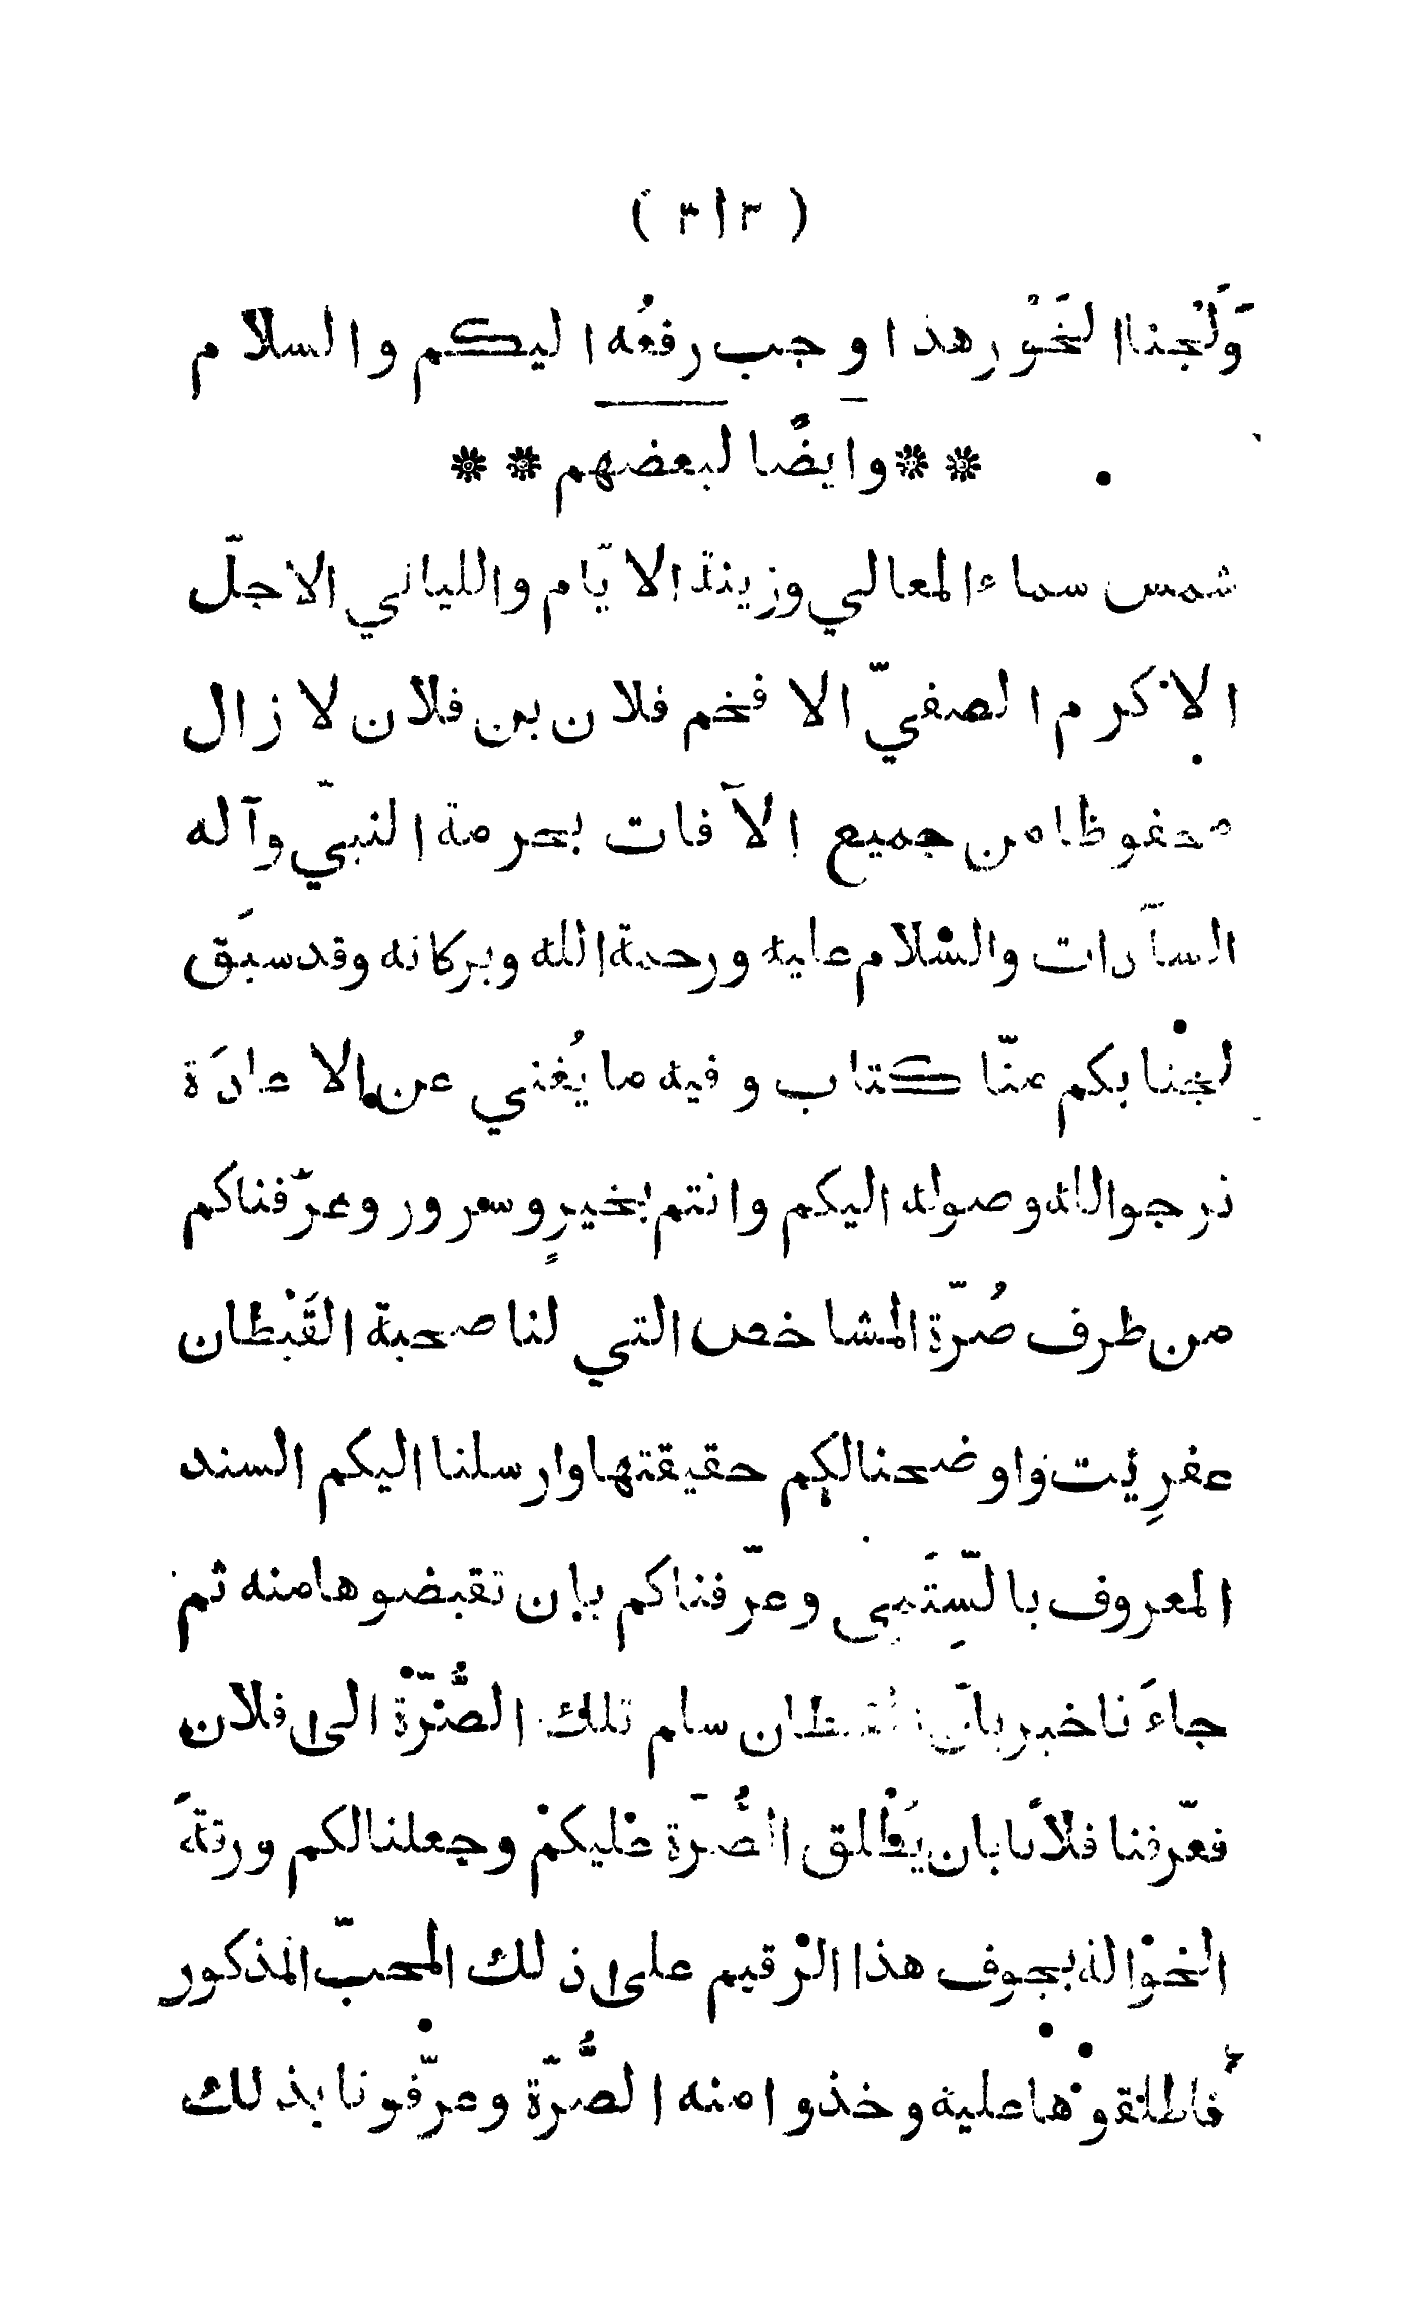 ( ٣١٣ )
وَلَجْنا الخَوْر هذا وجب رفعُه اليكم والسلام
** وايضًا لبعضهم **
شمس سماء المعالي وزينة الايّام والليالي الاجلّ
الاكرم الصفيّ الافخم فلان بن فلان لا زال
محفوظا من جميع الآفات بحرمة النبيّ وآله
السادات والسلام عليه ورحمة الله وبركاته وقد سبَق
لجنابكم منّا كتاب وفيه ما يُغني عن الاعادَة
نرجوا الله وصوله اليكم وانتم بخيرٍ وسرور وعرّفناكم
من طرف صُرّة المشاخص التي لنا صحبة القَبْطان
عفرِيت واوضحنا لكم حقيقتها وارسلنا اليكم السند
المعروف بالسِّتَمِى وعرّفناكم بان تقبضوها منه ثم
جاءَنا خبر بانّ القبطان سلم تلك الصُّرّة الى فلان
فعّرفنا فلاًنا بان يَطْلق الصُّرّة عليكم وجعلنا لكم ورقةً
الحْوالة بجوف هذا الرقيم على ذلك المحبّ المذكور
فاطلقوْها عليه وخذوا منه الصُّرّة وعرّفونا بذلك